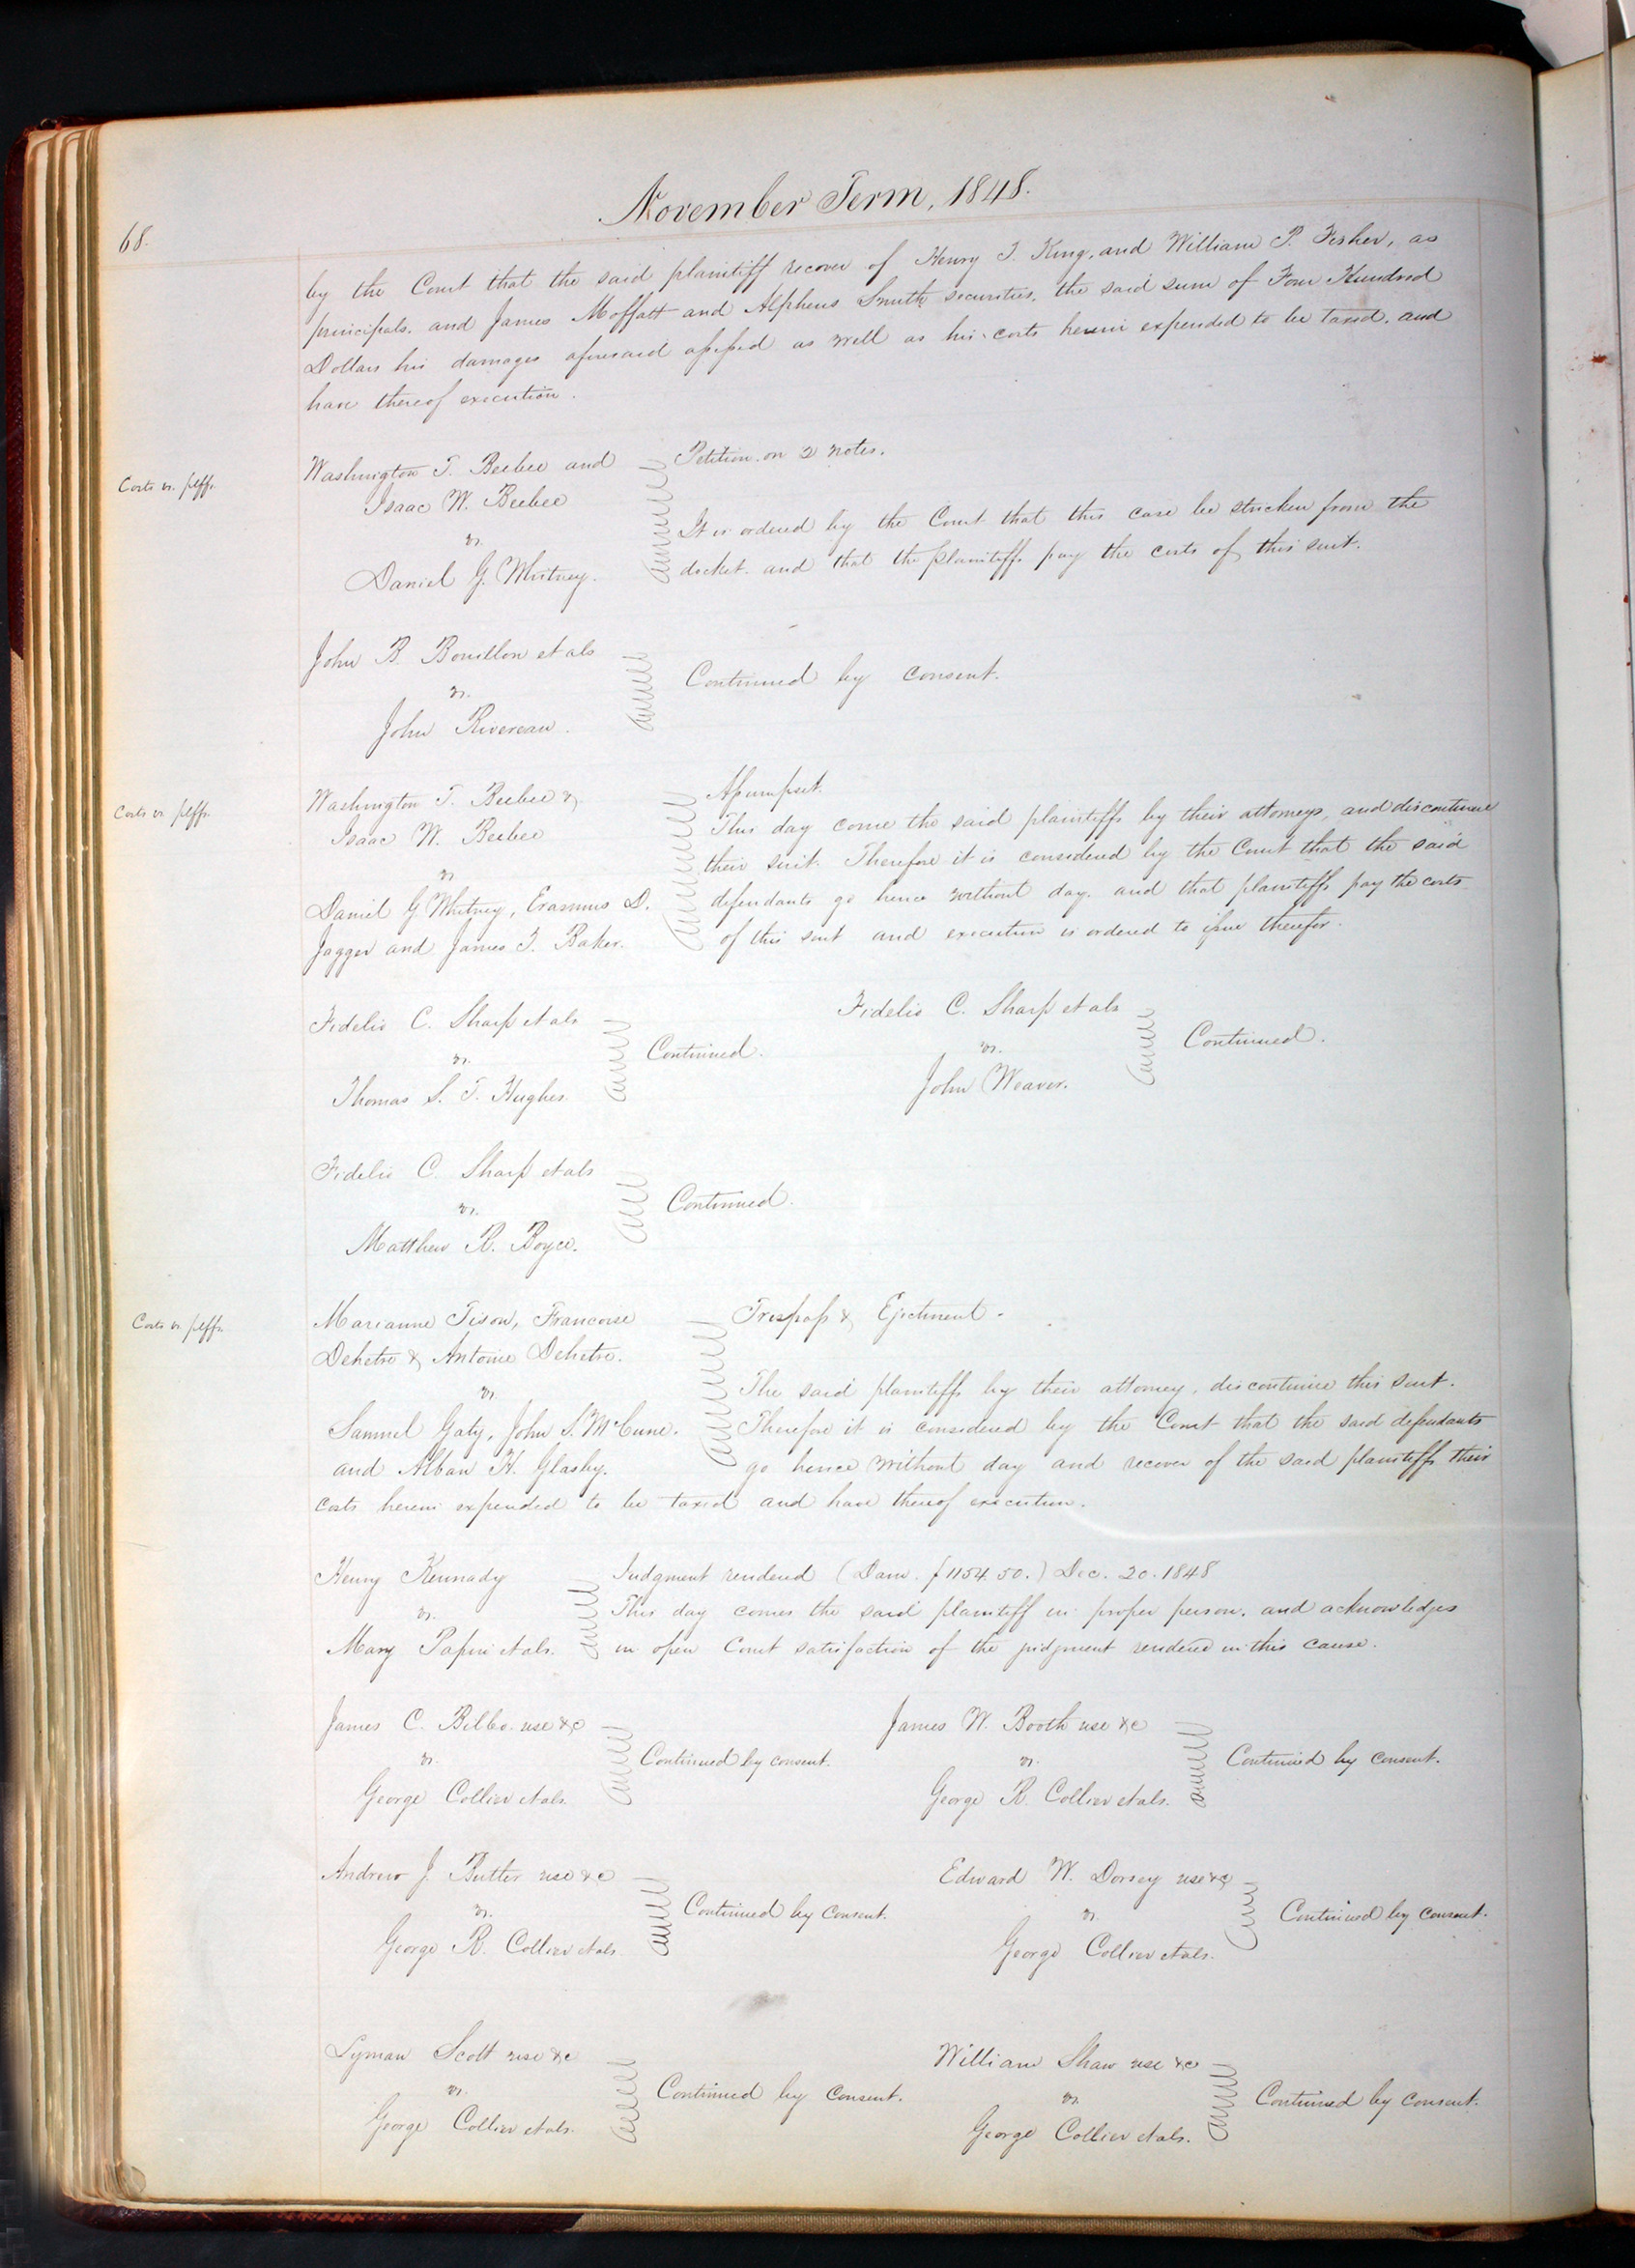 November Term, 1848.
68.
by the Court that the said plaintiff recover of Henry T. King, and William P. Fisher, as
principals, and James Moffatt and Alpheus Smith securities, the said sum of Four Hundred
Dollars his damages aforesaid assessed as well as his costs herein expended to be taxed, and
have thereof execution.
Costs vs. plffs.
Washington T. Beebee and
Isaac W. Beebee
vs.
Daniel G. Whitney.
Petition on 2 notes.
It is ordered by the Court that this case be stricken from the
docket and that the plaintiffs pay the costs of this suit.
John B. Bouillon et als
vs.
John Rivereau.
Continued by consent.
Costs vs plffs.
Washington T. Beebee &
Isaac W. Beebee
vs
Daniel G Whitney, Erasmus D.
Jagger and James T. Baker.
Assumpsit.
This day come the said plaintiffs by their attorneys, and discontinue
their suit. Therefore it is considered by the Court that the said
defendants go hence without day, and that plaintiffs pay the costs
of this suit and execution is ordered to issue therefor.
Fidelio C. Sharp et als
vs.
Thomas S. T. Hughes.
Continued.
Fidelio C. Sharp et als
vs.
John Weaver.
Continued.
Fidelio C. Sharp et als
vs.
Matthew R. Boyce.
Continued.
Costs vs. plffs.
Marianne Tison, Francoise
Dehetre & Antoine Dehetre.
vs.
Samuel Gaty, John S. McCune.
and Alban H. Glasby.
Trespass & Ejectment.
The said plaintiffs by their attorney, discontinue this suit.
Therefore it is considered by the Court that the said defendants
go hence without day and recover of the said plaintiffs their
costs herein expended to be taxed and have thereof execution.
Henry Kennady
vs.
Mary Papin et als.
Judgment rendered (Dam. $1154.50.) Dec. 20. 1848
This day comes the said plaintiff in proper person, and acknowledges
in open Court satisfaction of the judgment rendered in this cause.
James C. Bilbo. use &c
vs.
George Collier et als.
Continued by consent.
James W. Booth use &c
vs.
George R. Collier et als.
Continued by consent.
Andrew J. Butler use &c
vs.
George R. Collier et als
Continued by consent.
Edward W. Dorsey use &c
vs.
George Collier et als.
Continued by consent.
Lyman Scott use &c
vs.
George Collier et als.
Continued by consent.
William Shaw use &c
vs.
George Collier et als.
Continued by consent.